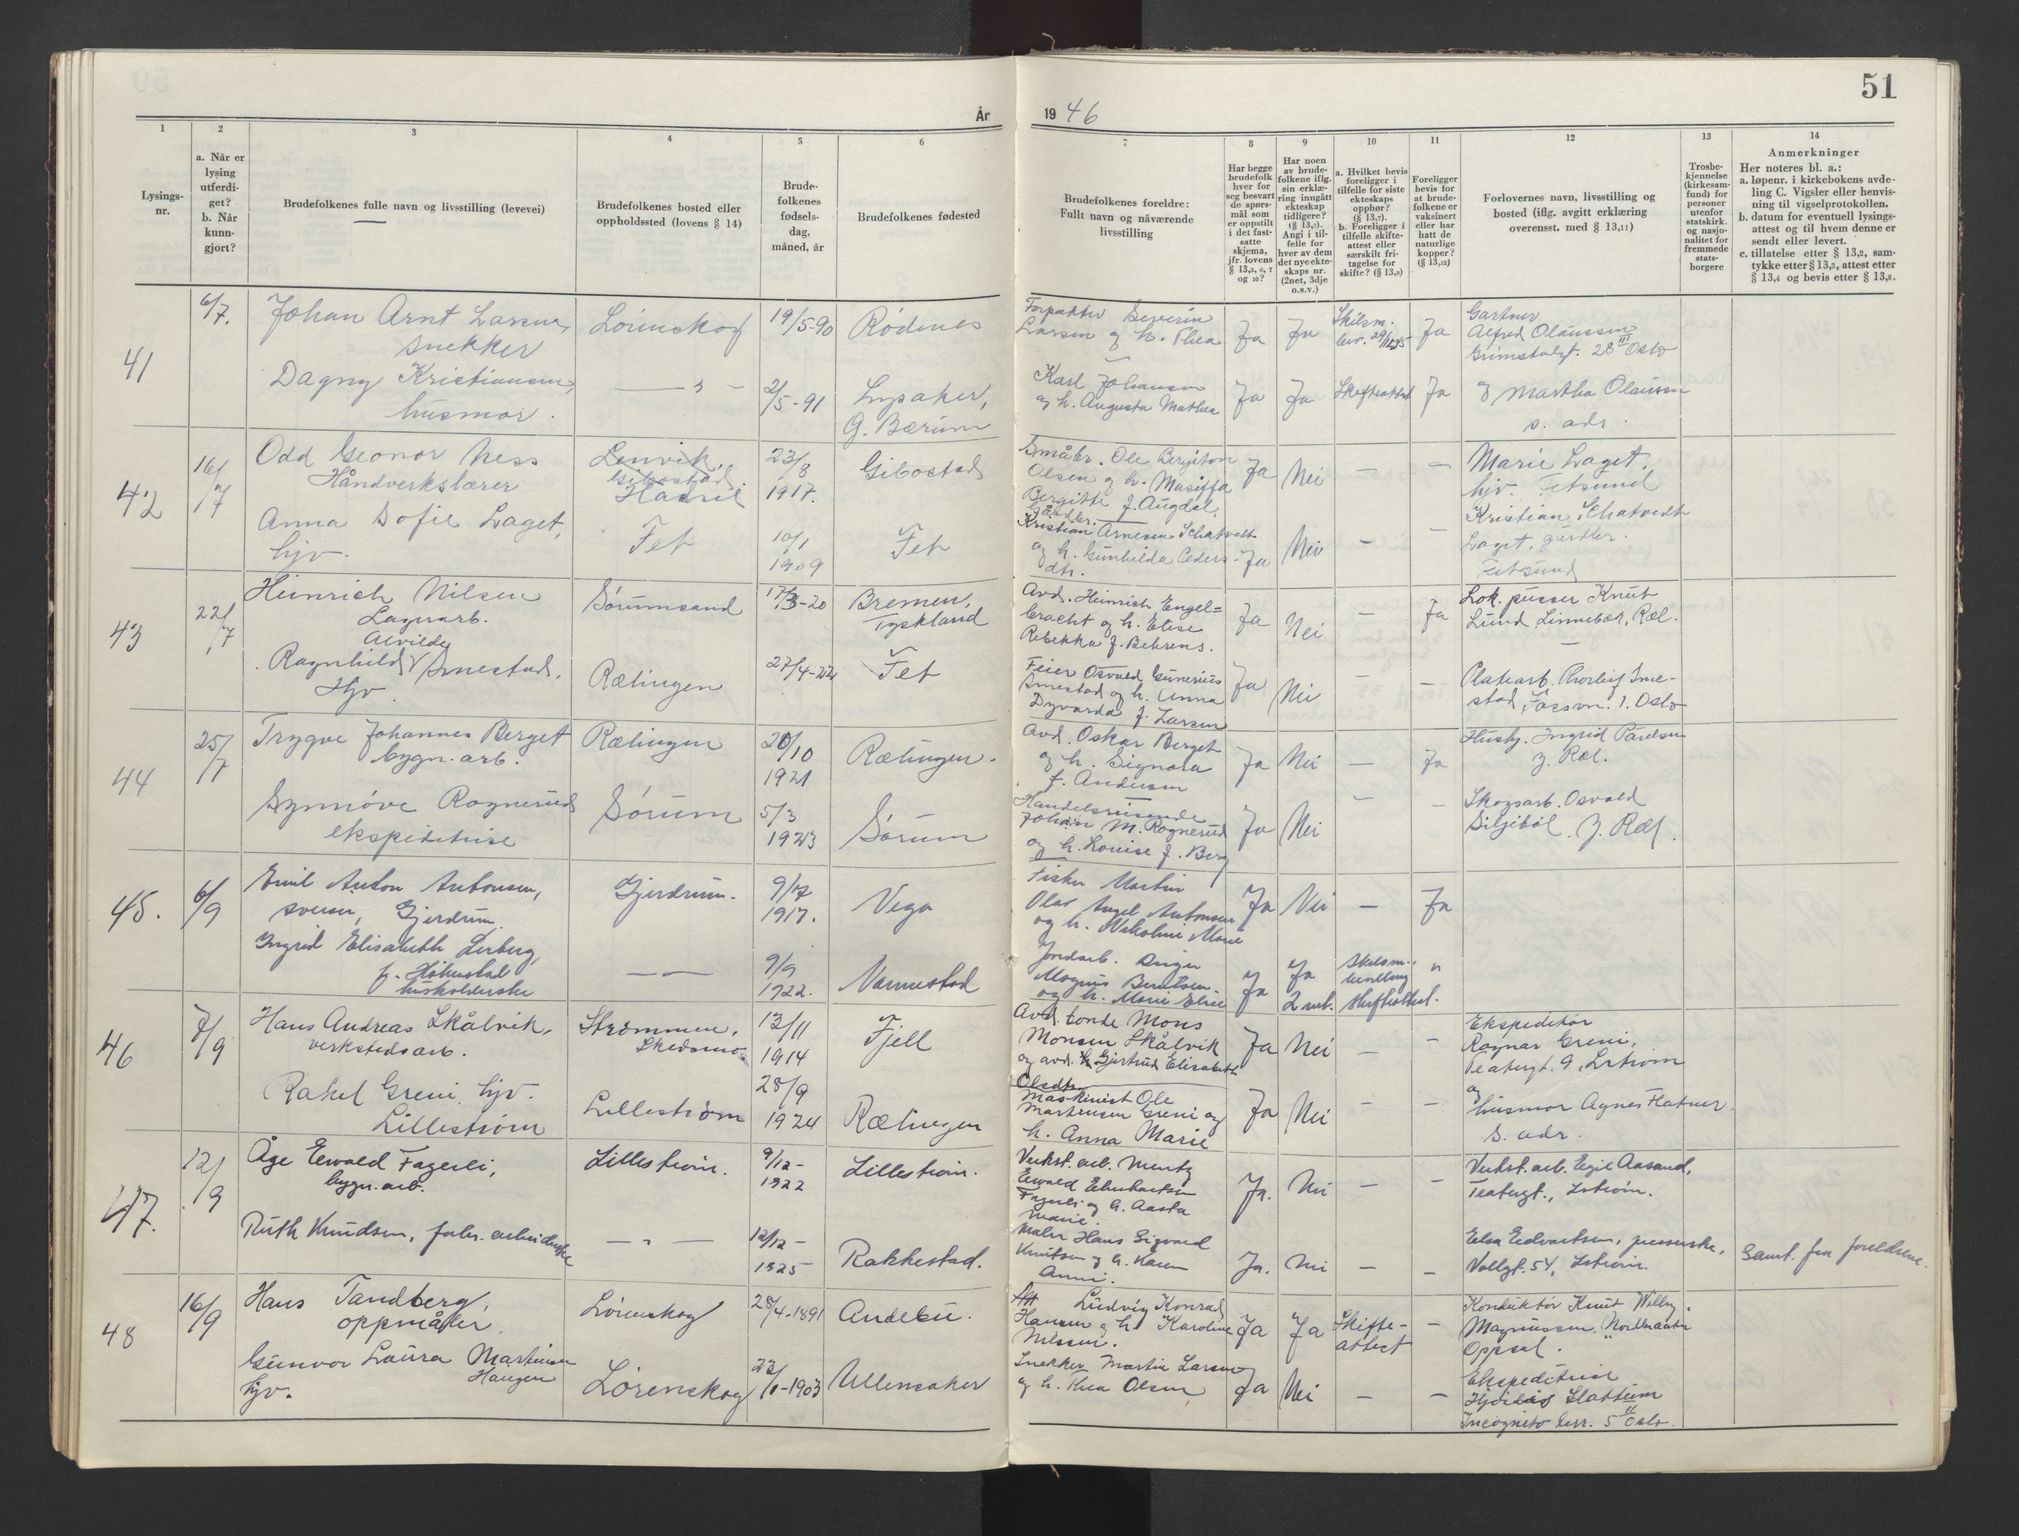 51
År
19 46
1
2
3
4
5
6
7
8
9
10
11
12
13
14
Lysings-
nr.
a. Når er
lysing
utferdi-
get?
b. Når
kunn-
gjort?
Brudefolkenes fulle navn og livsstilling (levevei)
Brudefolkenes bosted eller
oppholdssted (lovens § 14)
Brude-
folkenes
fødsels-
dag,
måned, år
Brudefolkenes fødested
Brudefolkenes foreldre:
Fullt navn og nåværende
livsstilling
Har begge
brudefolk
hver for
seg besvart
de spørs-
mål som
er oppstilt
i det fast-
satte
skjema,
jfr. lovens
§ 13,5, 6, 7
og 10?
Har noen
av brude-
folkene iflg.
sin erklæ-
ring inngått
ekteskap
tidligere?
(§ 13,7).
Angi i til-
felle for
hver av dem
det nye ekte-
skaps nr.
(2net, 3dje
o.s.v.)
a. Hvilket bevis
foreligger i
tilfelle for siste
ekteskaps
opphør?
(§ 13,7).
b. Foreligger i
tilfelle skifte-
attest eller
særskilt fri-
tagelse for
skifte? (§ 13,9)
Foreligger
bevis for
at brude-
folkene er
vaksinert
eller har
hatt de
naturlige
kopper?
(§ 13,12)
Forlovernes navn, livsstilling og
bosted (iflg. avgitt erklæring
overensst. med § 13,11)
Trosbe-
kjennelse
(kirkesam-
fund) for
personer
utenfor
statskirk.
og nasjo-
nalitet for
fremmede
stats-
borgere
Anmerkninger
Her noteres bl. a.:
a. løpenr. i kirkebokens avde-
ling C. Vigsler eller henvis-
ning til vigselprotokollen.
b. datum for eventuell lysings-
attest og til hvem denne er
sendt eller levert.
c. tillatelse etter § 13,2, sam-
tykke etter § 13,3, attest etter
§ 13,4 og bevis etter § 13,8.
41
6/7.
Johan Arnt Larsen,
snekker
Lørenskog
19/5-90
Rødenes
Forpakter Severin
Larsen og h. Thea
Ja
Ja
Skilsm.
bev. 29/12 45
Ja
Gartner
Alfred Olaussen
Grimstadgt. 28 III Oslo
Dagny Kristiansen,
husmor.
— " —
2/5-91
Lysaker,
G. Bærum
Karl Johansen
og h. Augusta Mathea
Ja
Ja
Skifteattest
Ja
og Martha Olaussen
s. adr.
42
16/7
Odd Geonor Ness
Håndverkslærer
Lenvik,
Gibostad
23/8
1917.
Gibostad
Småbr. Ole Bergiton
Olsen og h. Masiffa
Bergitte f. Augdal,
Ja
Nei
—
—
Marie Laget,
hjv. Fetsund
Anna Sofie Laget,
hjv.
Fet
10/1
1909
Fet
Kristian Arnesen Schatvedt
og h. Gunhilda Peders-
dtr.
Ja
Nei
—
—
Kristian Schatvedt
Laget, gårdbr.
Fetsund
43
22/7
Heinrich Nilsen
Lagerarb.
Sørumsand
17/3-20
Bremen,
Tyskland
Avd. Heinrich Engel=
bracht og h. Elise
Rebekka f. Behrens.
Ja
Nei
—
Ja
Lok. pusser Knut
Lund, Linnebær, Ræl.
Alvilde
Ragnhild Smestad,
Hjv.
Rælingen
27/4-22
Fet
Feier Osvald Gunerius
Smestad og h. Anna
Dyvarda f. Larsen
Ja
Nei
—
—
Platearb. Thorleif Sme-
stad, Fossvn. 1. Oslo
44
25/7
Trygve Johannes Berget
bygn. arb.
Rælingen
20/10
1921
Rælingen
Avd. Oskar Berget
og h. Signora
f. Andersen
Ja
Nei
—
Ja
Husby. Ingrid Paulsen
Y. Ræl.
Synnøve Rognerud
ekspeditrise
Sørum
5/3
1923
Sørum
Handelsreisende
Johan M. Rognerud
og h. Louise f. Berg
Ja
Nei
—
—
Skogsarb. Osvald
Siljebøl, Y. Ræl.
45.
6/9
Emil Anton Antonsen,
sveiser, Gjerdrum
Gjerdrum.
9/12
1917.
Vega
Fisker Martin
Olav Angel Antonsen
og h. Nikoline Marie
Ja
Nei
—
Ja
Ingrid Elisabeth Lerberg,
f. Høkustal
husholderske
— —
9/9
1922.
Vannestad
Jordarb. Inger
Magnus Berntsen
og h. Marie Elise
Ja
Ja
2 net.
Skilsm.-
bevilling
skifteattest.
"
46
7/9
Hans Andreas Skålvik,
verkstedsarb.
Strømmen,
Skedsmo
13/11
1914
Fjell
Avd. bonde Mons
Monsen Skålvik
og avd. h. Gjertrud Elisabeth
Olsdtr.
Ja
Nei
—
—
Ekspeditør
Ragnar Greni,
Teatergt. 9, Lstrøm
Rakel Greni, hjv.
Lillestrøm
Lillestrøm
28/9
1924
Rælingen
Maskinist Ole
Martinsen Greni og
h. Anna Marie
Ja
Nei
—
—
og
husmor Agnes Hafner
s. adr.
47.
12/9
Åge Ewald Fagerli,
bygn. arb.
Lillestrøm.
9/12-
1922
Lillestrøm.
Verkst. arb. Mentz
Ewald Edvartsen
Fagerli og h. Aasta
Marie.
Ja.
Nei
—
—
Verkst. arb. Egil Aasand,
Teatergt., Lstrøm.
Ruth Knudsen, fabr. arbeiderske
— " —
12/12-
1925
Rakkestad.
Maler Hans Sigvald
Knutsen og h. Karen
Anni.
Ja.
Nei
—
—
Elsa Edvartsen, presserske,
Vollgt. 54, Lstrøm.
Samt. fra foreldrene.
48
16/9
Hans Tandberg,
oppmåler
Lørenskog
28/4-1891
Andebu.
Ludvig Konrad
Hansen og h. Karoline
Nilssen.
Ja
Ja
Skifte-
attest
—
Konduktør Knut Willy
Magnussen,
Oppsal.
Gunvor Laura Martinsen
Haugen
hjv.
Lørenskog
23/1-1903
Ullensaker
Snekker Martin Larsen
og h. Thea Olsen
Ja
Nei
—
—
Ekspeditrise
Hjördis Slattum
Incognito terr. 5 II Oslo.